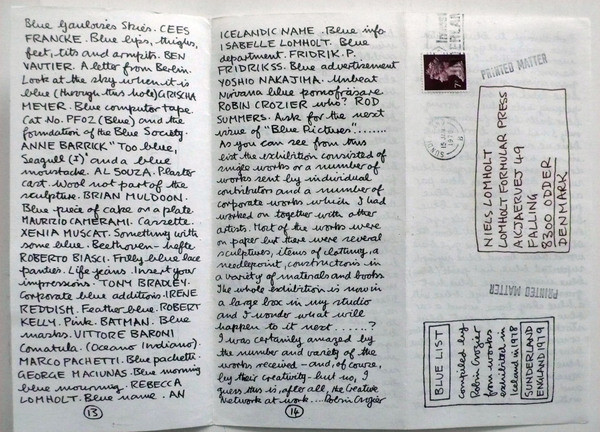 Blue Gauloises Skies. CEES
FRANCKE. Blue lips, thighs,
feet, tits and armpits. BEN
VAUTIER. A letter from Berlin.
Look at the sky when it is
blue (through this hole) GRISCHA
MEYER. Blue computer tape.
Cat No. PF02 (Blue) and the
foundation of the Blue Society.
ANNE BARRICK "Too blue,
Seagull (I)" and a blue
moustache. AL SOUZA. Plaster
cast. Wool not part of the
sculpture. BRIAN MULDOON.
Blue piece of cake on a plate.
MAURIZIO CAMERAMI. Cassette.
XENIA MUSCAT. Something with
some blue. Beethoven-hefte
ROBERTO BIASCI. Frilly blue lace
panties. Life jeans. Insert your
impressions. TONY BRADLEY.
Corporate blue additions. IRENE
REDDISH. Feather blue. ROBERT
KELLY. Pink. BATMAN. Blue
marks. VITTORE BARONI
Comatula. (Oceano Indiano).
MARCO PACHETTI. Blue pachetti.
GEORGE MACIUNAS. Blue morning
blue mourning. REBECCA
LOMHOLT. Blue name. AN
13
ICELANDIC NAME. Blue info
ISABELLE LOMHOLT. Blue
department. FRIDRIK. P.
FRIDRIKSS. Blue advertisement
YOSHIO NAKATJMA. Unbeat
Nirvana blue pornofrasare.
ROBIN CROZIER who? ROD
SUMMERS. Ask for the next
issue of "Blue Pictures"........
As you can see from this
list the exhibition consisted of
single works or a number of
works sent by individual
contributors and a number of
corporate works which I had
worked on together with other
artists. Most of the works were
on paper but there were several
sculptures, items of clothing, a
needlepoint, constructions in
a variety of materials and books
The whole exhibition is now in
a large box in my studio
and I wonder what will
happen to it next......?
I was certainly amazed by
the number and variety of the
works received - and, of course,
by their creativity - but no, I
guess this is, after all, the Creative
Network at work.... Robin Crozier
14
PRINTED MATTER
NIELS LOMHOLT
LOMHOLT FORMULAR PRESS
AKJAERVEJ 49
FALLING
8300 ODDER
DENMARK
PRINTED MATTER
BLUE LIST
compiled by
Robin Crozier
from works
exhibited in
Iceland in 1978
SUNDERLAND
ENGLAND 1979